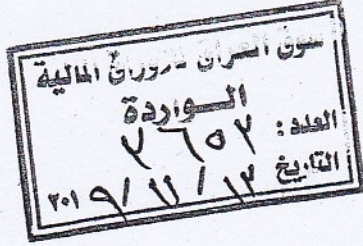 سوق العراق للاوراق المالية
الـواردة
العدد : ٢٦٥٢
التاريخ ١٢ / ١١ / ٢٠١٩